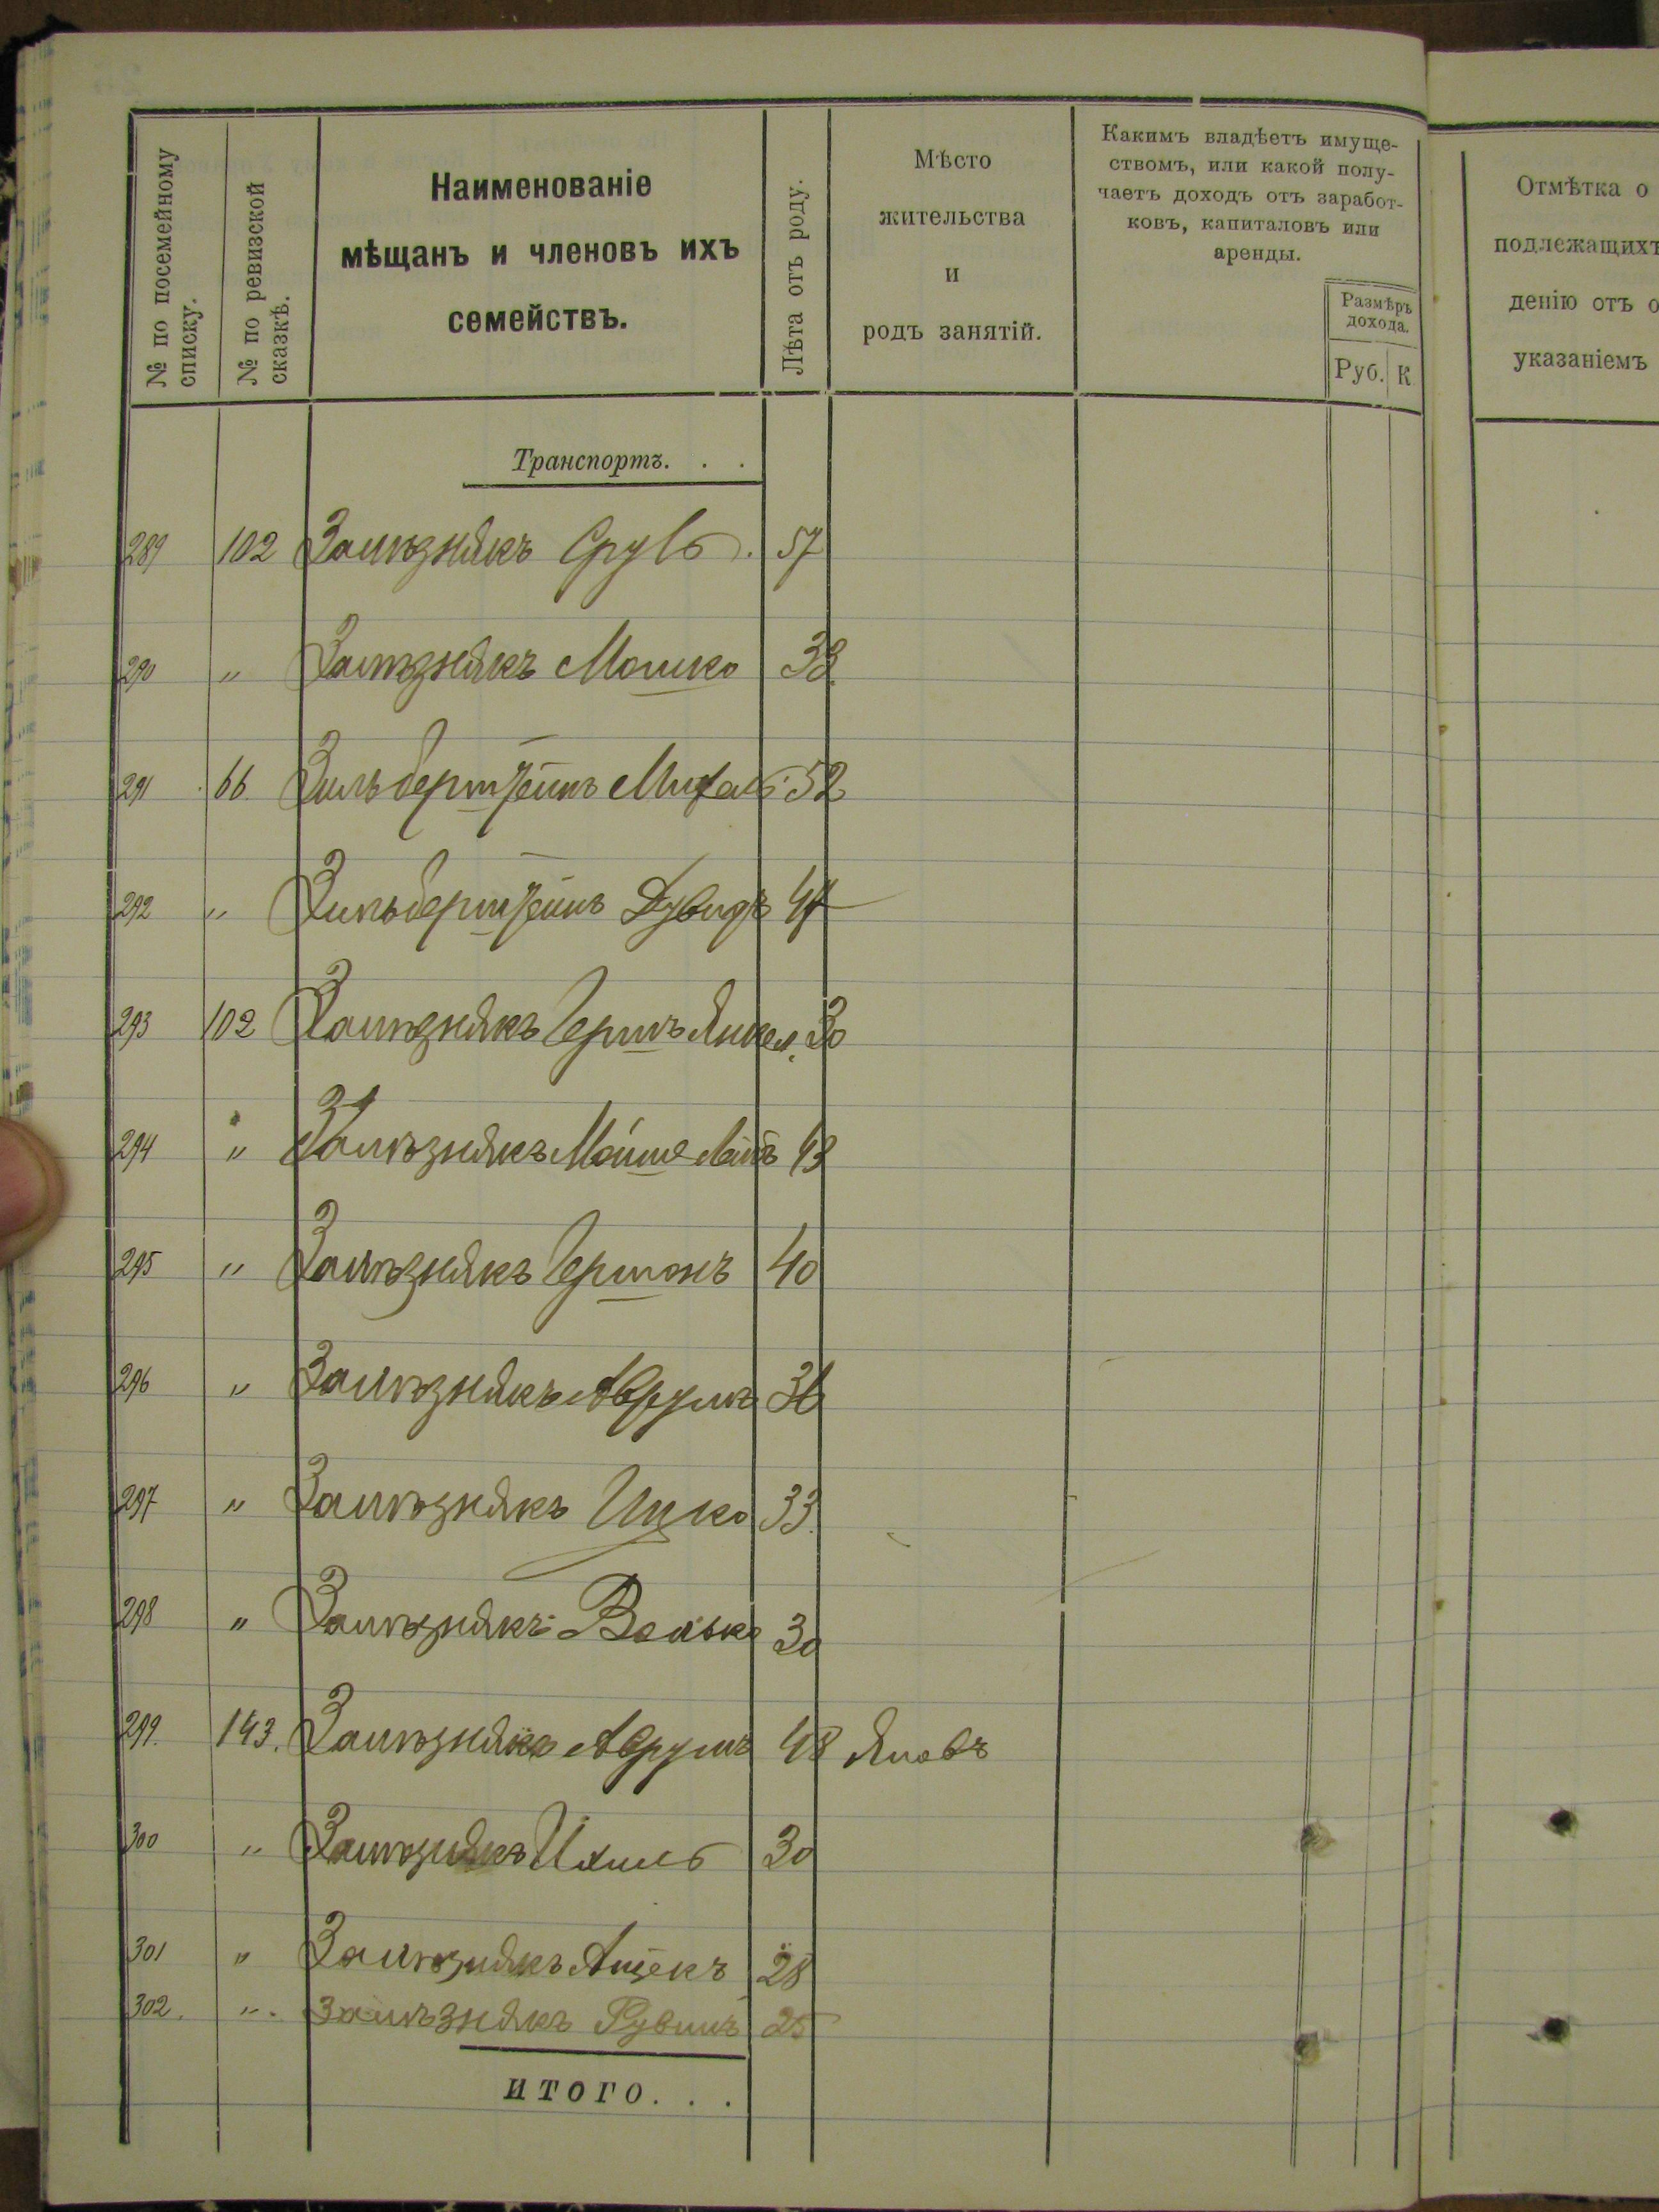 № по посемейному списку.
№ по ревизской сказкѣ.
Наименованіе
мѣщанъ и членовъ ихъ
семействъ.
Лѣта отъ роду.
Мѣсто
жительства
и
родъ занятій.
Какимъ владѣетъ имуще-
ствомъ, или какой полу-
чаетъ доходъ отъ заработ-
ковъ, капиталовъ или
аренды.
Размѣръ
дохода.
Руб. К
Отмѣтка о
подлежащихъ
денію отъ о
указаніемъ
Транспортъ. . .
289 102 Залѣзнякъ Сруль. 57
290 " Залѣзнякъ Мошко 38
291 66 Зильберштейнъ Михаль 52
292 " Зильберштейнъ Дувидъ 44
293 102 Залѣзнякъ Гершъ Янкел. 30
294 " Залѣзнякъ Мойше Лейбъ 43
295 " Залѣзнякъ Гершонъ 40
296 " Залѣзнякъ Аврумъ 36
297 " Залѣзнякъ Ицко 33.
298 " Залѣзнякъ Волько 30
299. 143. Залѣзнякъ Аврумъ 48 Яновъ
300 " Залѣзнякъ Ихиль 30
301 " Залѣзнякъ 28
302. ". Залѣзнякъ Рувинъ 25
ИТОГО. . .